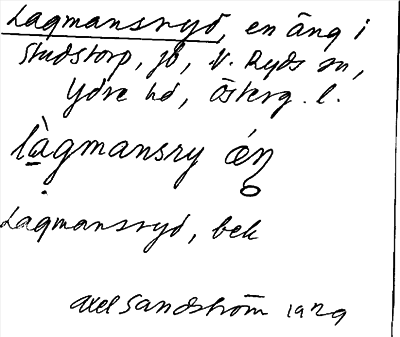 Lagmansryd, en äng i
Studstorp, jb, V. Ryds sn,
Ydre hd, Österg. l.
làgmansry
Lagmansryd, bek
Axel Sandström 1929